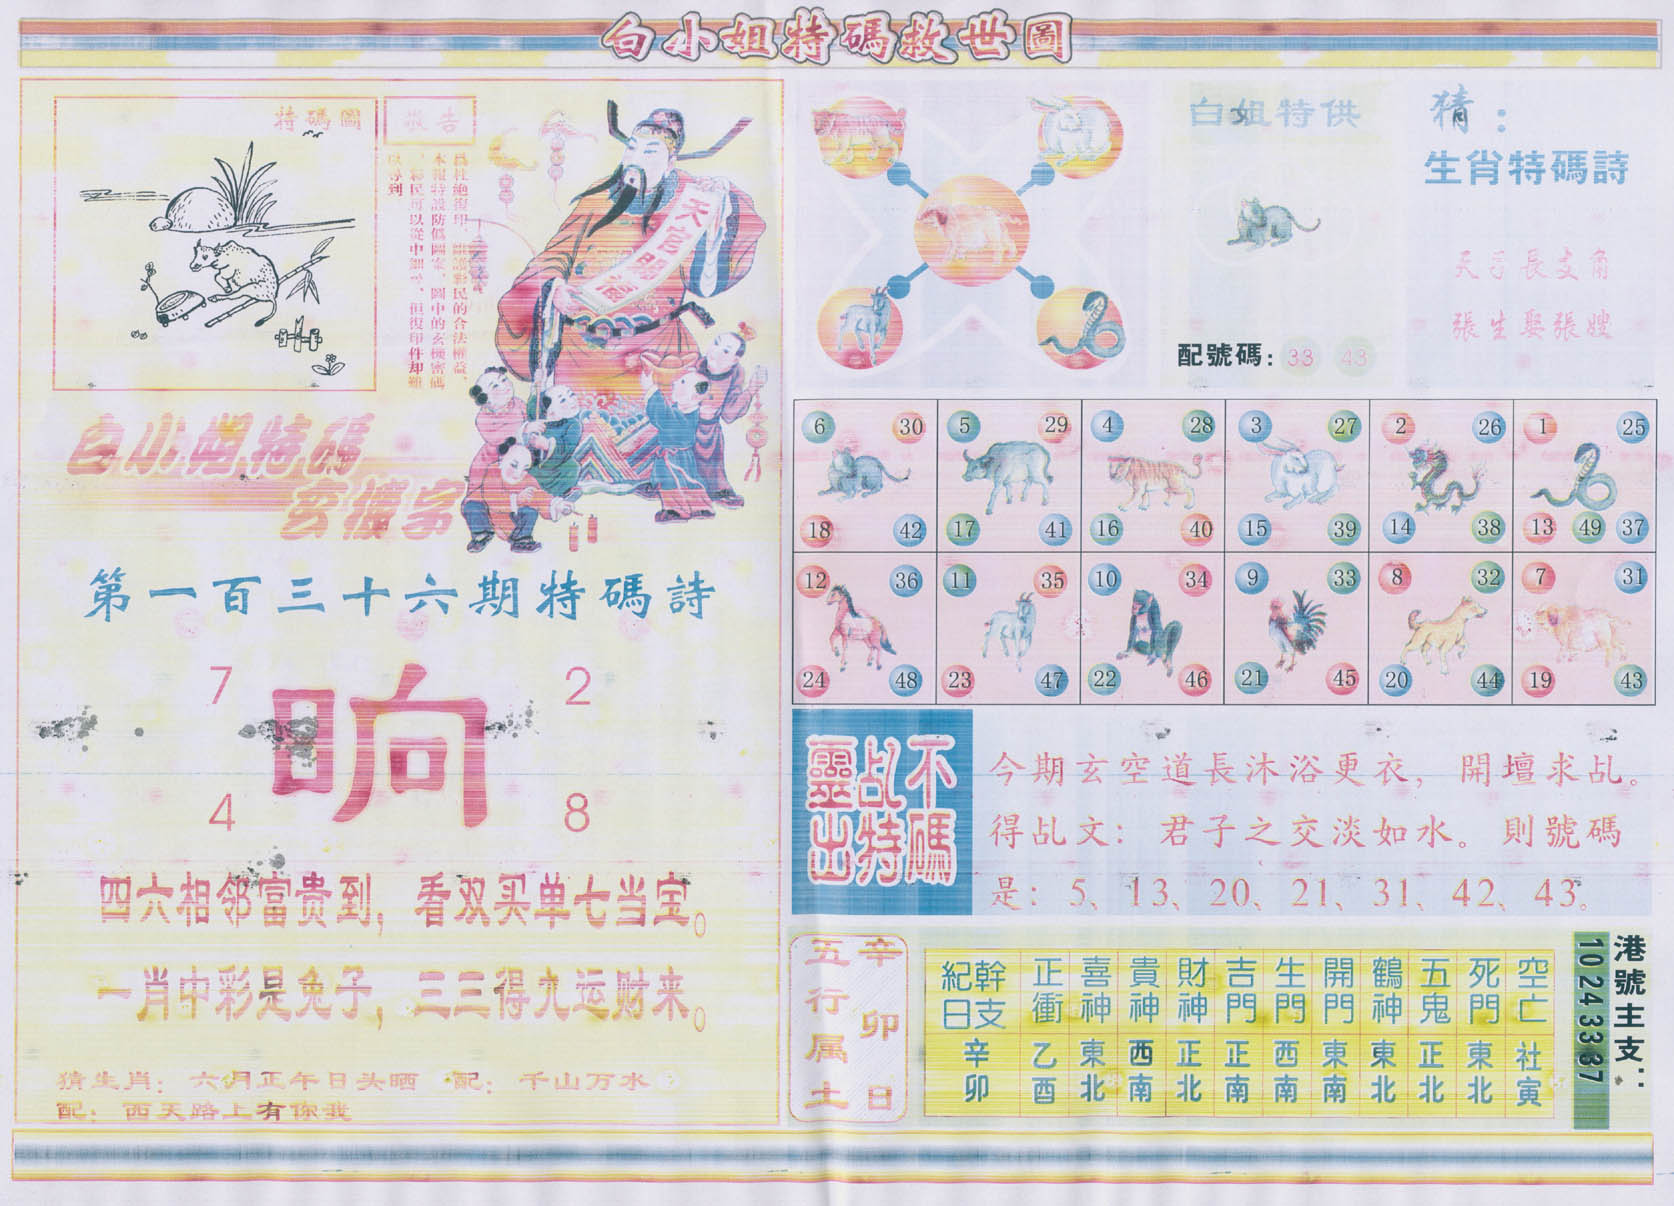 白小姐特碼救世圖
特碼圖
報告
爲杜絶復印、維護彩民的合法權益、
本報特設防僞圖案、圖中的玄機密碼
、彩民可以從中細尋、但復印件却難
以尋到
天官賜福
白小姐特碼
玄機字
第一百三十六期特碼詩
7
2
晌
4
8
四六相邻富贵到，看双买单七当宝。
一肖中彩是兔子，三三得九运财来。
猜生肖：六月正午日头晒 配：千山万水
配：西天路上有你我
白姐特供
配號碼：33 43
猜：
生肖特碼詩
天子長支角
張生娶張嫂
6 30 5 29 4 28 3 27 2 26 1 25
18 42 17 41 16 40 15 39 14 38 13 49 37
12 36 11 35 10 34 9 33 8 32 7 31
24 48 23 47 22 46 21 45 20 44 19 43
不碼
乩特
靈出
今期玄空道長沐浴更衣，開壇求乩。
得乩文：君子之交淡如水。則號碼
是：5、13、20、21、31、42、43。
辛卯日
五行属土
紀日 幹支 正衝 喜神 貴神 財神 吉門 生門 開門 鶴神 五鬼 死門 空亡
辛卯 乙酉 東北 西南 正北 正南 西南 東南 東北 正北 東北 社寅
港號主支：
10 24 33 37